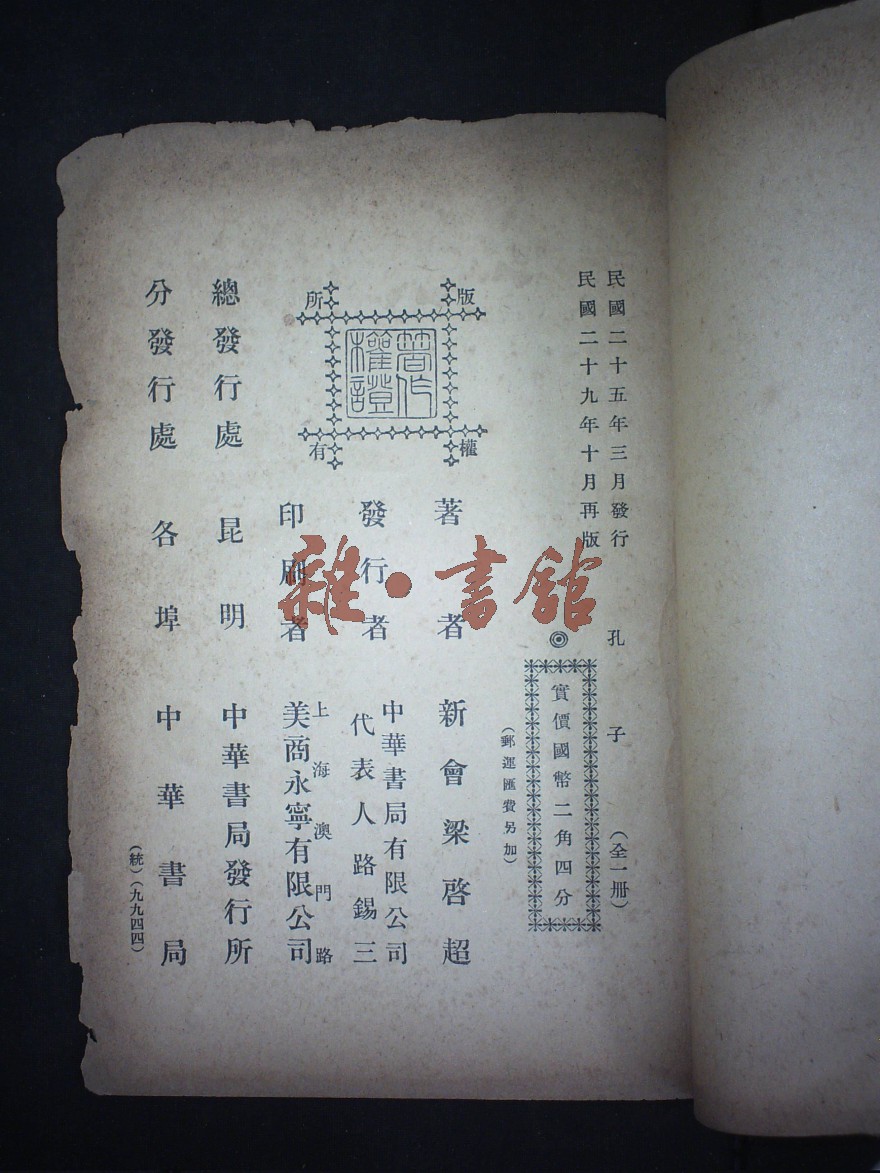 民國二十五年三月發行
民國二十九年十月再版
孔子(全一冊)
◎
實價國幣二角四分
(郵運匯費另加)
版權所有
著作權證
著者 新會梁啓超
發行者 中華書局有限公司
代表人路錫三
印刷者 上海澳門路
美商永寧有限公司
總發行處 昆明 中華書局發行所
分發行處 各埠 中華書局
(統)(九九四四)
雜·書館